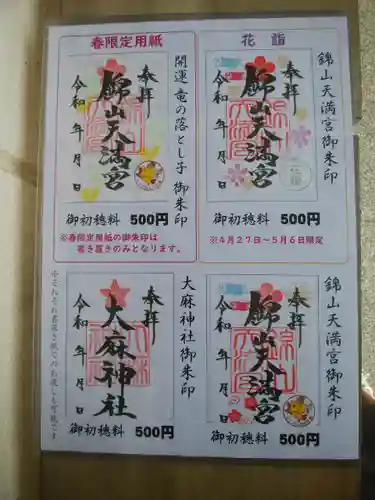 春限定用紙
開運 竜の落とし子 御朱印
奉拝
錦山天満宮
令和 年 月 日
御初穂料 500円
※春限定用紙の御朱印は
書き置きのみとなります。
花詣
錦山天満宮御朱印
奉拝
錦山天満宮
令和 年 月 日
御初穂料 500円
※4月27日〜5月6日限定
大麻神社御朱印
奉拝
大麻神社
令和 年 月 日
御初穂料 500円
錦山天満宮御朱印
奉拝
錦山天満宮
令和 年 月 日
御初穂料 500円
※それぞれ書置き紙でのお渡しも可能です